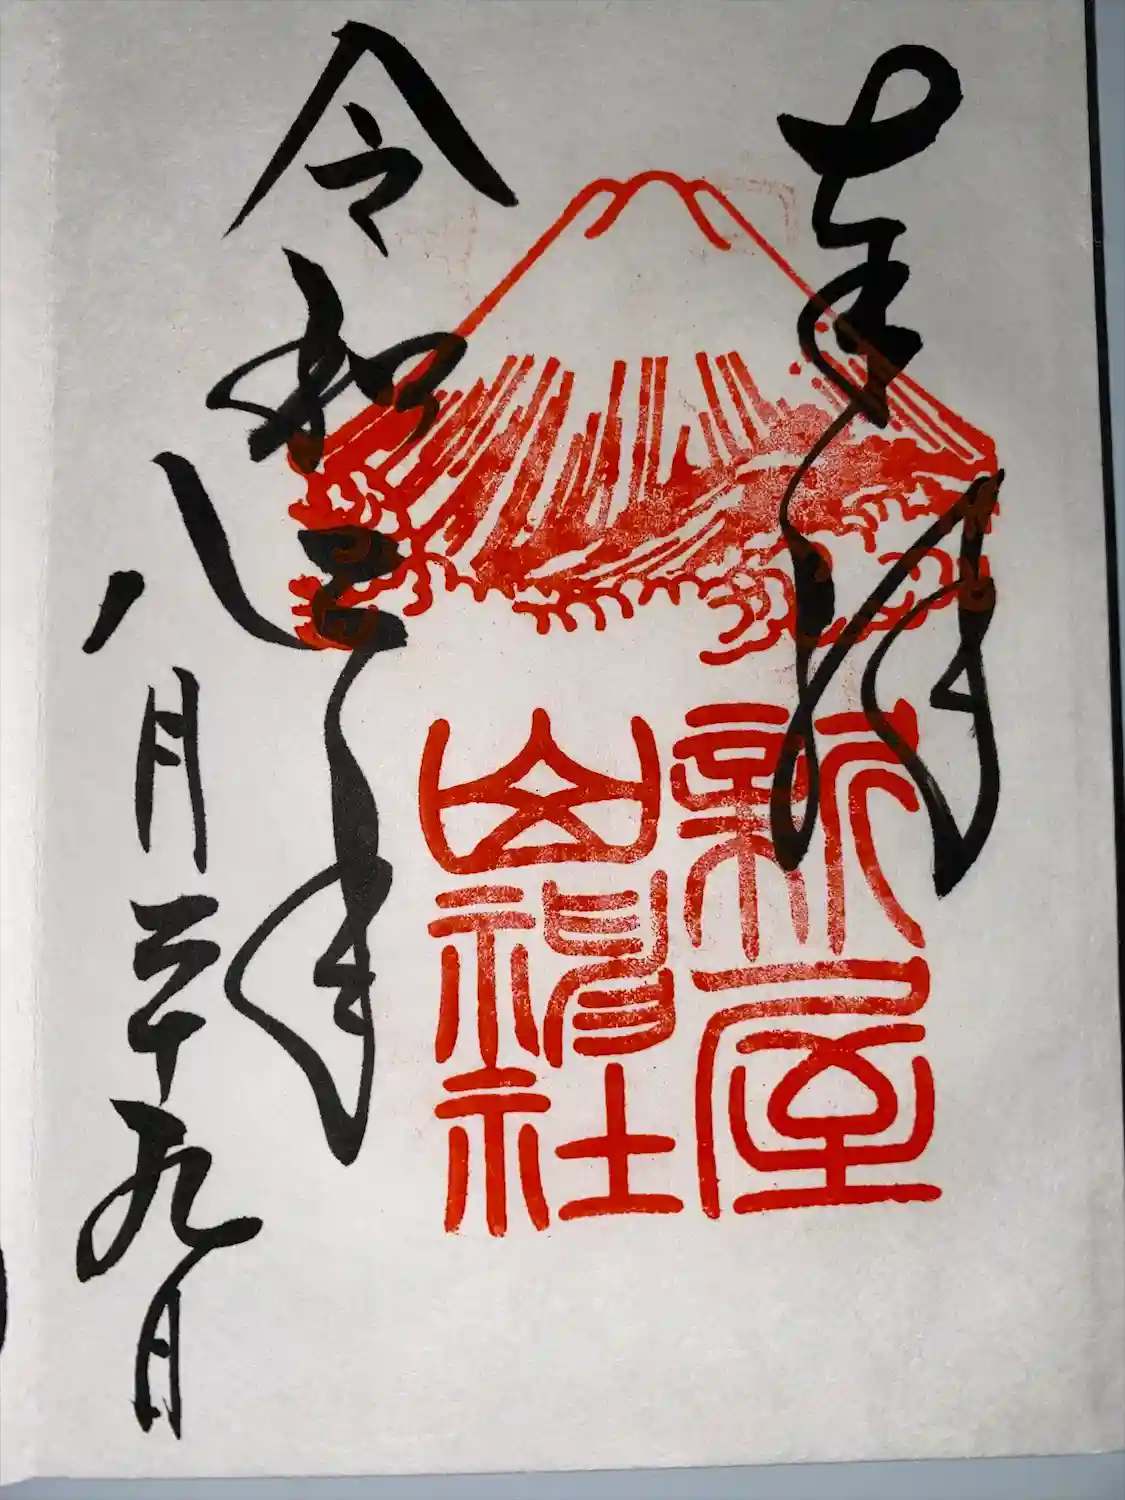 奉拝
新屋
山神社
令和三年
八月二十九日